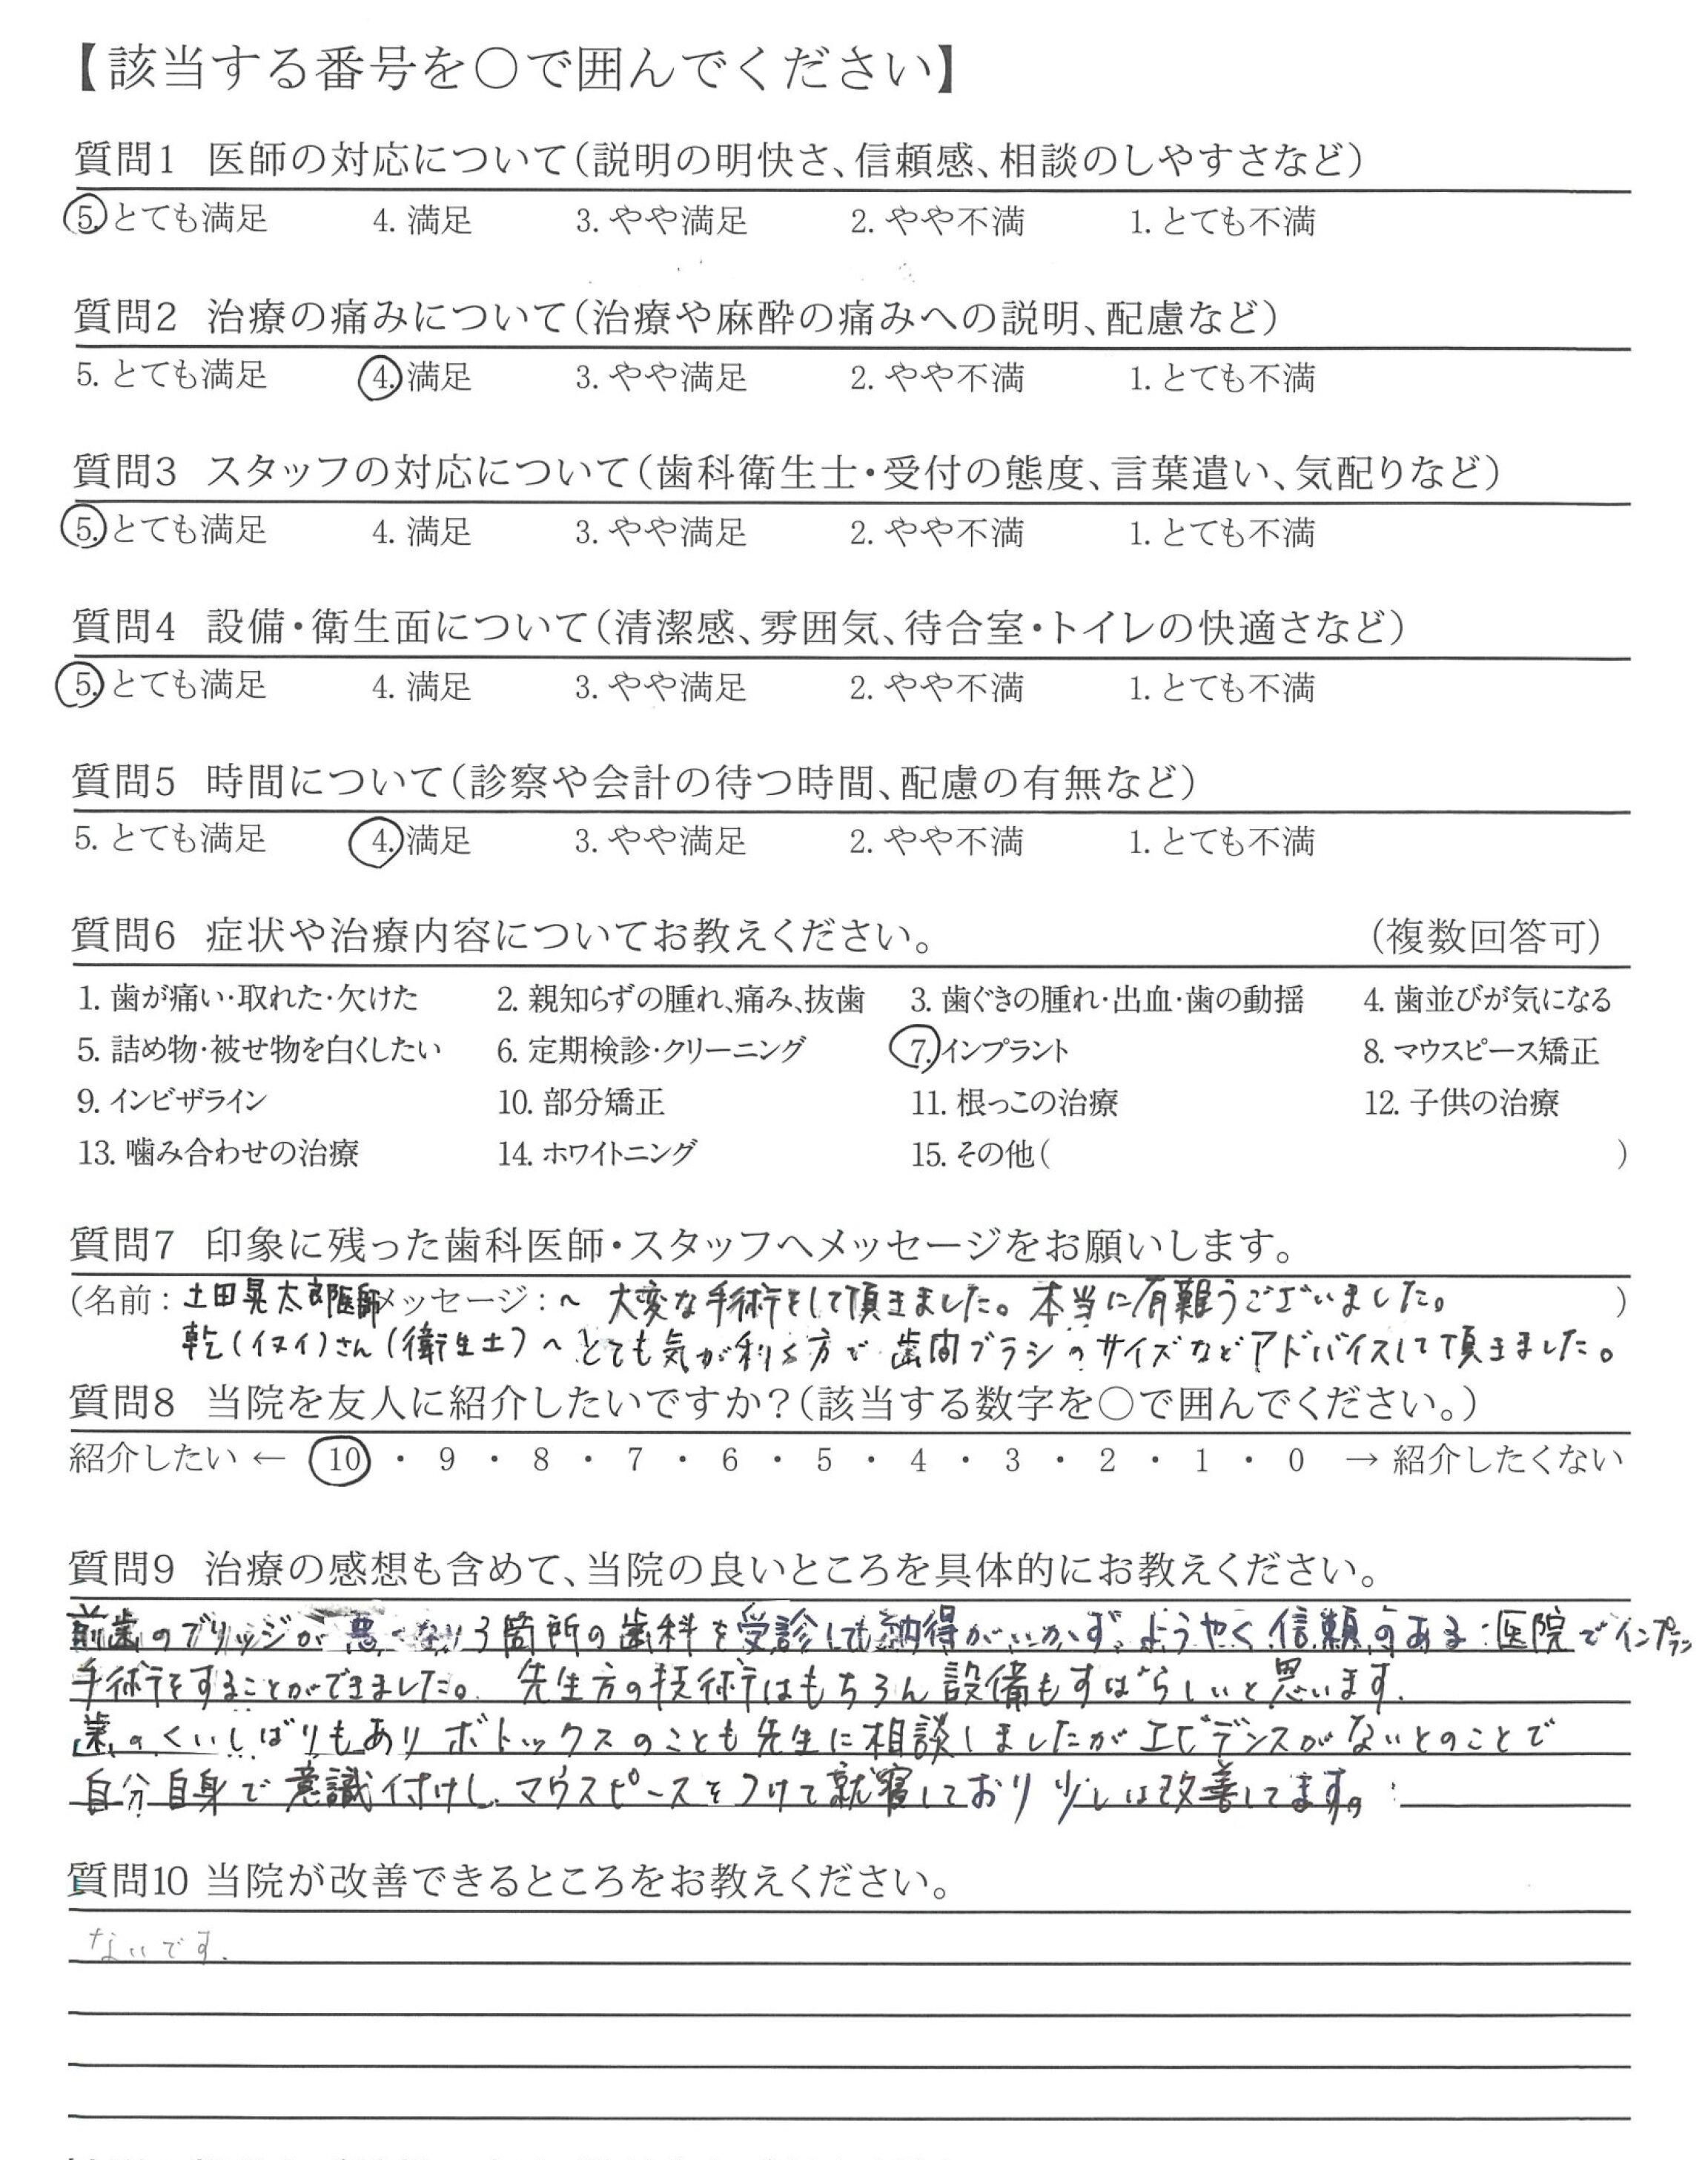 【該当する番号を○で囲んでください】
質問1 医師の対応について(説明の明快さ、信頼感、相談のしやすさなど)
5. とても満足 4. 満足 3. やや満足 2. やや不満 1. とても不満
質問2 治療の痛みについて(治療や麻酔の痛みへの説明、配慮など)
5. とても満足 4. 満足 3. やや満足 2. やや不満 1. とても不満
質問3 スタッフの対応について(歯科衛生士・受付の態度、言葉遣い、気配りなど)
5. とても満足 4. 満足 3. やや満足 2. やや不満 1. とても不満
質問4 設備・衛生面について(清潔感、雰囲気、待合室・トイレの快適さなど)
5. とても満足 4. 満足 3. やや満足 2. やや不満 1. とても不満
質問5 時間について(診察や会計の待つ時間、配慮の有無など)
5. とても満足 4. 満足 3. やや満足 2. やや不満 1. とても不満
質問6 症状や治療内容についてお教えください。 (複数回答可)
1. 歯が痛い・取れた・欠けた 2. 親知らずの腫れ、痛み、抜歯 3. 歯ぐきの腫れ・出血・歯の動揺 4. 歯並びが気になる
5. 詰め物・被せ物を白くしたい 6. 定期検診・クリーニング 7. インプラント 8. マウスピース矯正
9. インビザライン 10. 部分矯正 11. 根っこの治療 12. 子供の治療
13. 噛み合わせの治療 14. ホワイトニング 15. その他( )
質問7 印象に残った歯科医師・スタッフへメッセージをお願いします。
(名前: 土田晃太郎医師 メッセージ: へ 大変な手術をして頂きました。本当に有難うございました。 )
乾(イヌイ)さん(衛生士)へ とても気が利く方で 歯間ブラシのサイズなどアドバイスして頂きました。
質問8 当院を友人に紹介したいですか?(該当する数字を○で囲んでください。)
紹介したい ← 10 ・ 9 ・ 8 ・ 7 ・ 6 ・ 5 ・ 4 ・ 3 ・ 2 ・ 1 ・ 0 → 紹介したくない
質問9 治療の感想も含めて、当院の良いところを具体的にお教えください。
前歯のブリッジが悪くなり3箇所の歯科を受診しても納得がいかず、ようやく信頼のある医院でインプラン
手術をすることができました。先生方の技術はもちろん設備もすばらしいと思います。
歯のくいしばりもあり ボトックスのことも先生に相談しましたがエビデンスがないとのことで
自分自身で意識付けし、マウスピースをつけて就寝しており 少しは改善してます。
質問10 当院が改善できるところをお教えください。
ないです。